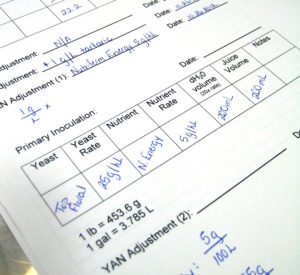 22.2
Date:
Date:
Adjustment: N/A
Adjustment: + 1 g/L tartaric
YAN Adjustment (1): Nutristem Energy 5g/hL
1g
L x
Primary Inoculation:
Yeast Yeast Rate Nutrient Nutrient Rate dH2O volume Juice Volume Notes
Top Floral 25g/hL N. Energy 5g/hL 200mL 200mL
1 lb = 453.6 g
1 gal = 3.785 L
YAN Adjustment (2):
Date:
5g
100L